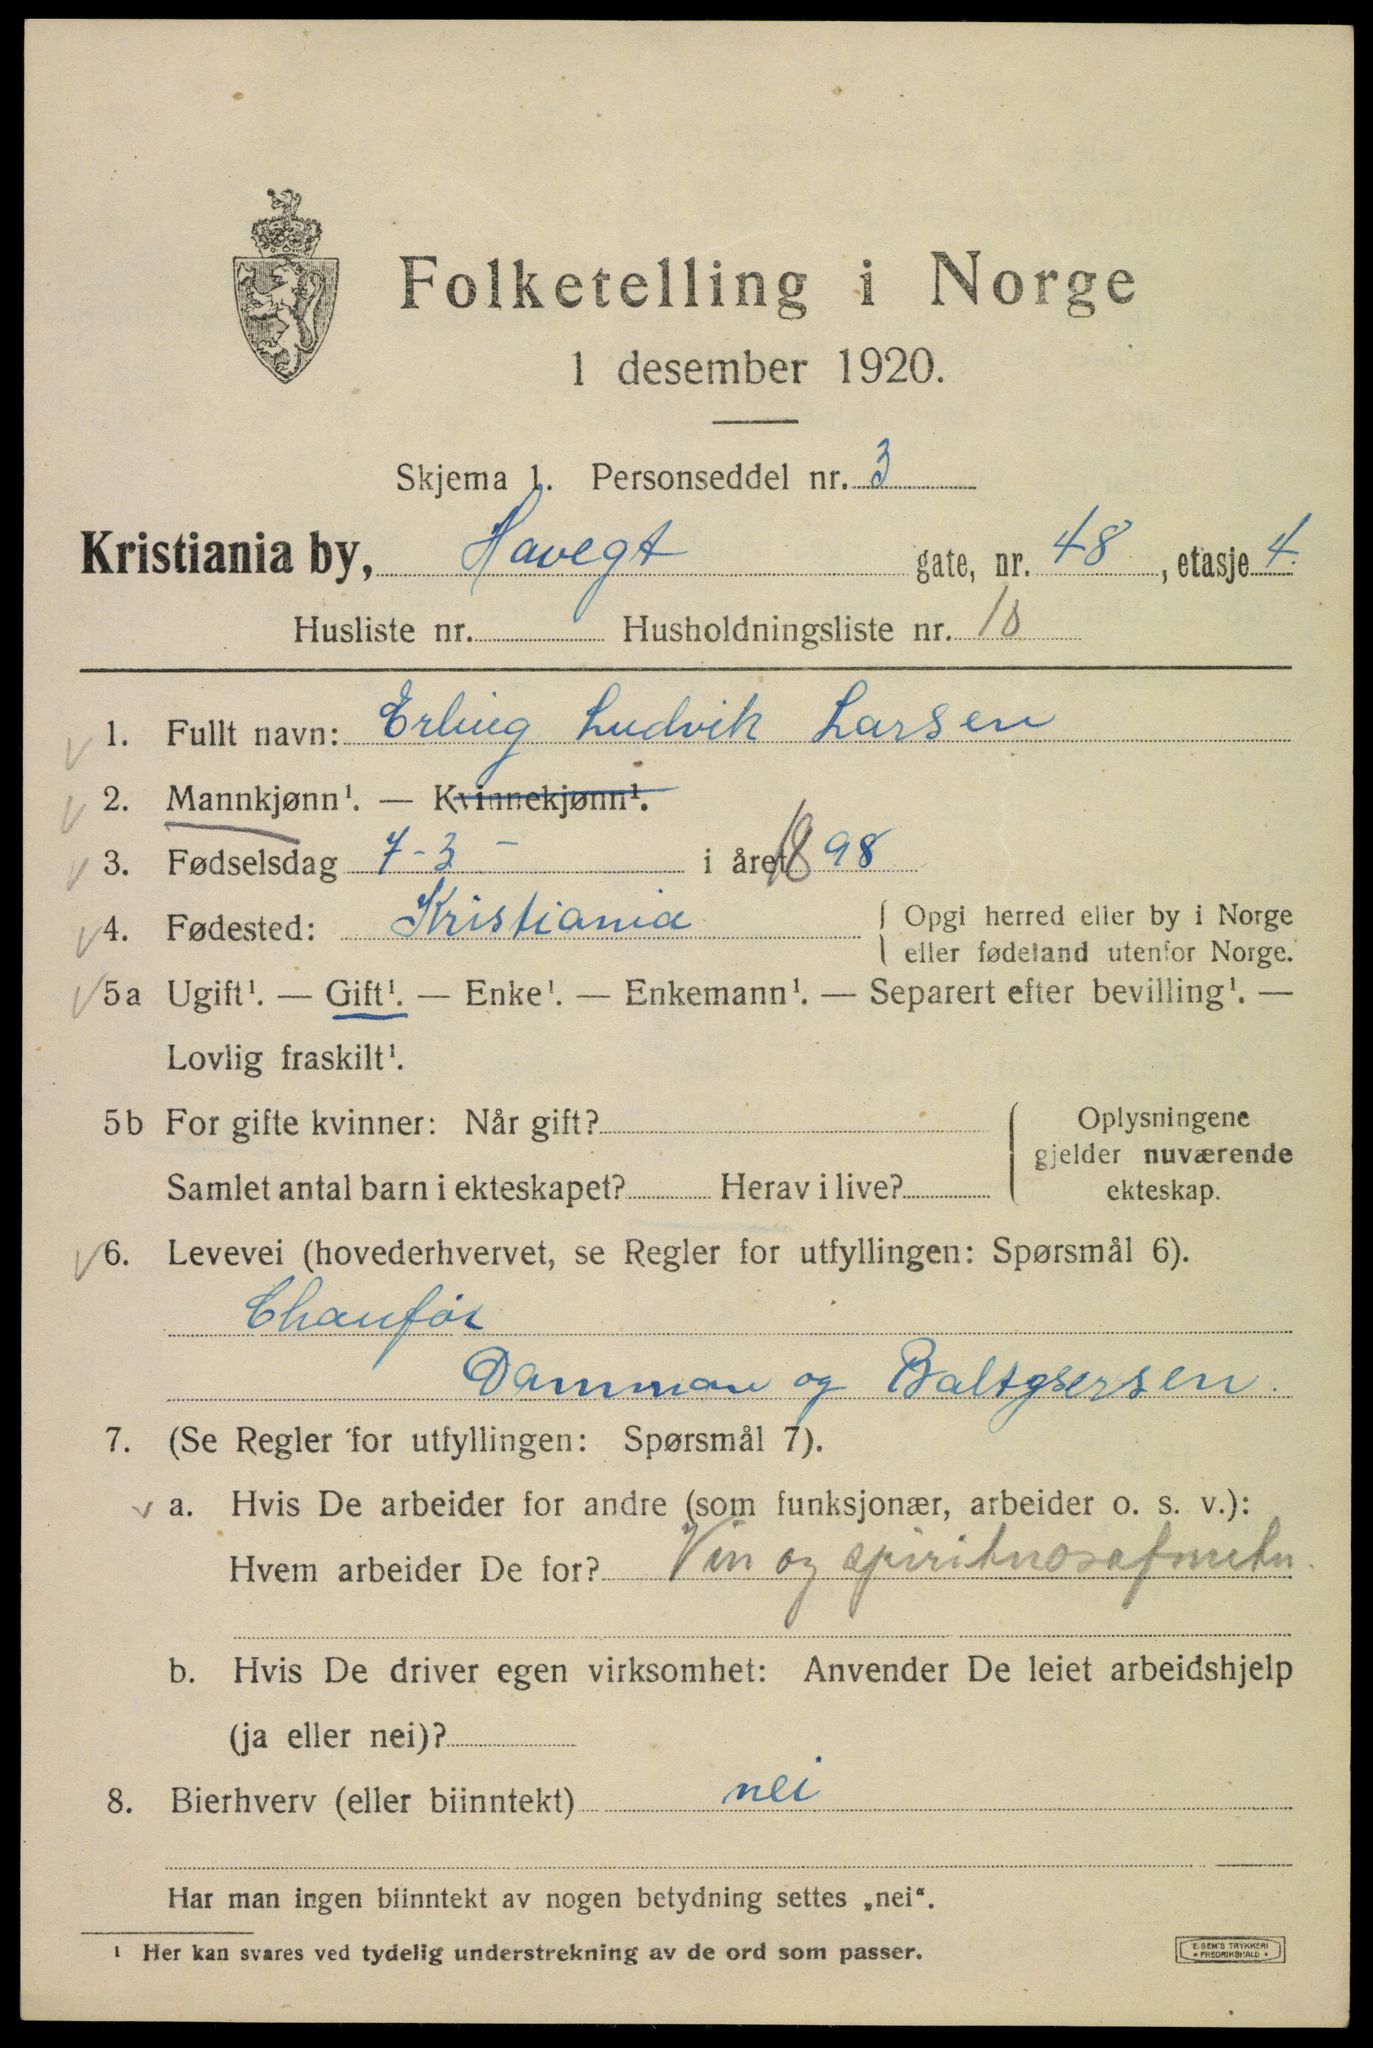 Folketelling i Norge
1 desember 1920.
Skjema 1. Personseddel nr. 3
Kristiania by, Havegt gate, nr. 48, etasje 4.
Husliste nr. Husholdningsliste nr. 10
1. Fullt navn: Erling Ludvik Larsen
2. Mannkjønn¹. — Kvinnekjønn¹.
3. Fødselsdag 7-3- i året 1898
4. Fødested: Kristiania { Opgi herred eller by i Norge
eller fødeland utenfor Norge.
5a Ugift¹. — Gift¹. — Enke¹. — Enkemann¹. — Separert efter bevilling¹. —
Lovlig fraskilt¹.
5b For gifte kvinner: Når gift?
Samlet antal barn i ekteskapet? Herav i live?
{ Oplysningene
gjelder nuværende
ekteskap.
6. Levevei (hovederhvervet, se Regler for utfyllingen: Spørsmål 6).
Chaufør
Damman og
7. (Se Regler for utfyllingen: Spørsmål 7).
a. Hvis De arbeider for andre (som funksjonær, arbeider o. s. v.):
Hvem arbeider De for? Vin og
b. Hvis De driver egen virksomhet: Anvender De leiet arbeidshjelp
(ja eller nei)?
8. Bierhverv (eller biinntekt) nei
Har man ingen biinntekt av nogen betydning settes „nei“.
¹ Her kan svares ved tydelig understrekning av de ord som passer.
E. SEM'S TRYKKERI
• FREDRIKSHALD •